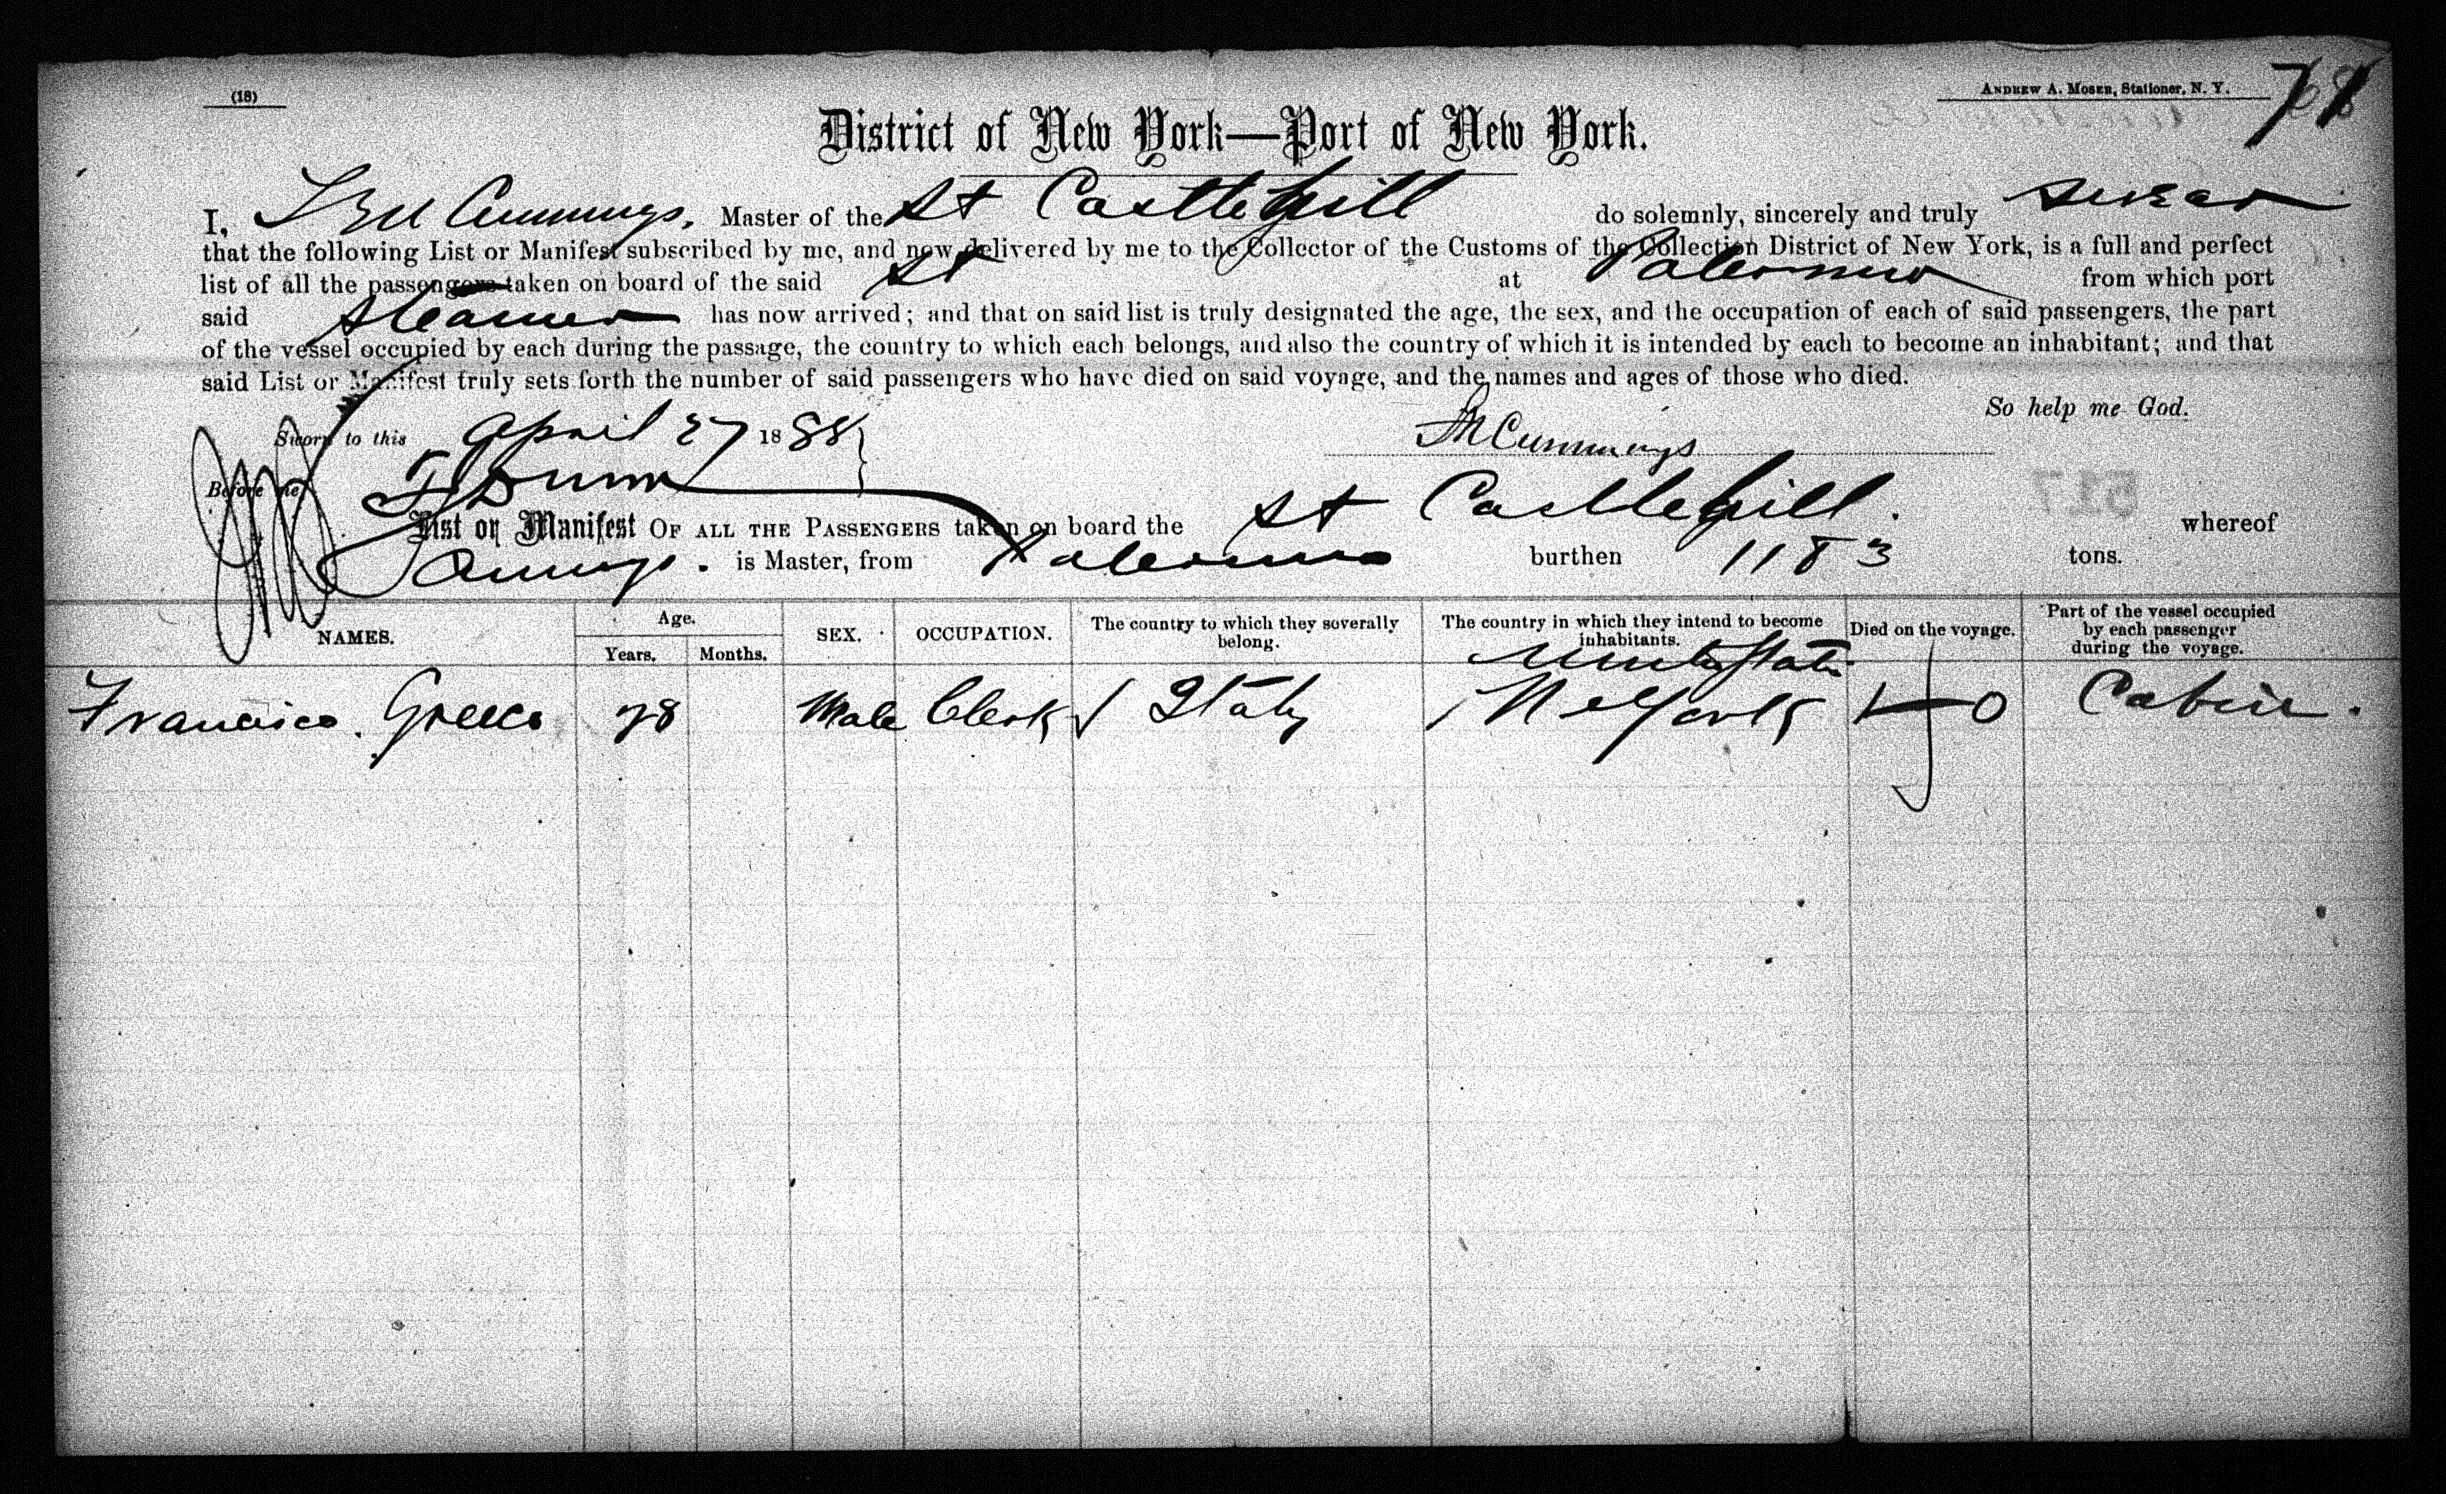 (18)
ANDREW A. MOSER, Stationer, N. Y.
71
District of New York—Port of New York.
I, Cummings, Master of the St Castlehill do solemnly, sincerely and truly swear
that the following List or Manifest subscribed by me, and now delivered by me to the Collector of the Customs of the Collection District of New York, is a full and perfect
list of all the passengers taken on board of the said St at Palermo from which port
said Steamer has now arrived; and that on said list is truly designated the age, the sex, and the occupation of each of said passengers, the part
of the vessel occupied by each during the passage, the country to which each belongs, and also the country of which it is intended by each to become an inhabitant; and that
said List or Manifest truly sets forth the number of said passengers who have died on said voyage, and the names and ages of those who died.
So help me God.
Sworn to this April 27 1888
Cummings
Before me Dunn
517
List or Manifest OF ALL THE PASSENGERS taken on board the St Castlehill. whereof
is Master, from Palermo burthen 1183 tons.
NAMES. Age. Years. Months. SEX. OCCUPATION. The country to which they severally belong. The country in which they intend to become inhabitants. Died on the voyage. Part of the vessel occupied by each passenger during the voyage.
United States
Francisco Greeco 28 Male Clerk Italy N York Cabin.